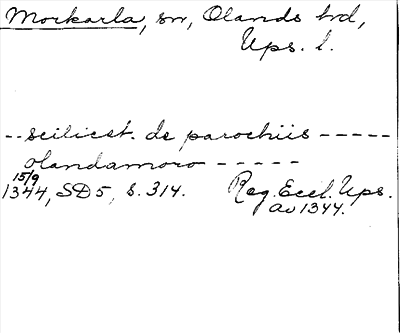 Morkarla, sn, Olands hd,
Ups. l.
-- scilicet. de parochiis -----
olandamoro -----
15/9
1344, SD 5, s. 314. Reg. Eccl. Ups.
av 1344.